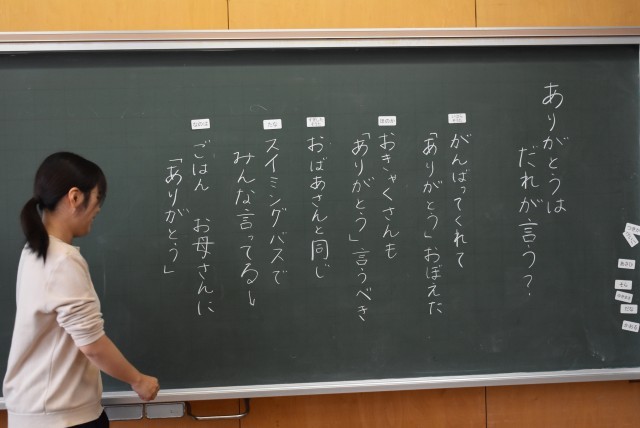 ありがとうは
だれが言う？
がんばってくれて
「ありがとう」おぼえた
ほのか
おきゃくさんも
「ありがとう」言うべき
おばあさんと同じ
たな
スイミングバスで
みんな言ってるし
なのは
ごはん お母さんに
「ありがとう」